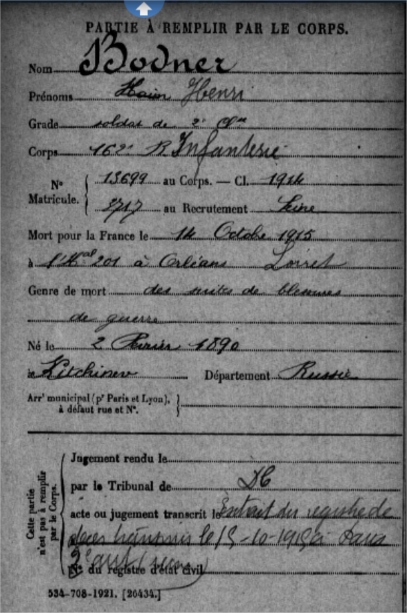 PARTIE À REMPLIR PAR LE CORPS.
Nom Bodner
Prénoms Haim Henri
Grade soldat de 2e Clse
Corps 162e R. Infanterie
N° Matricule. { 13699 au Corps. — Cl. 1914
2717 au Recrutement Seine
Mort pour la France le 14 Octobre 1915
à l'Hal 201 à Orléans Loiret
Genre de mort des suites de blessures
de guerre
Né le 2 Février 1890
à Kitchinev Département Russie
Arrt municipal (pr Paris et Lyon), à défaut rue et N°.
Cette partie n'est pas à remplir par le Corps.
Jugement rendu le
par le Tribunal de
acte ou jugement transcrit le Extrait du registre de
le 15-10-1915 à Paris
N° du registre d'état civil
534-708-1921. [26434.]